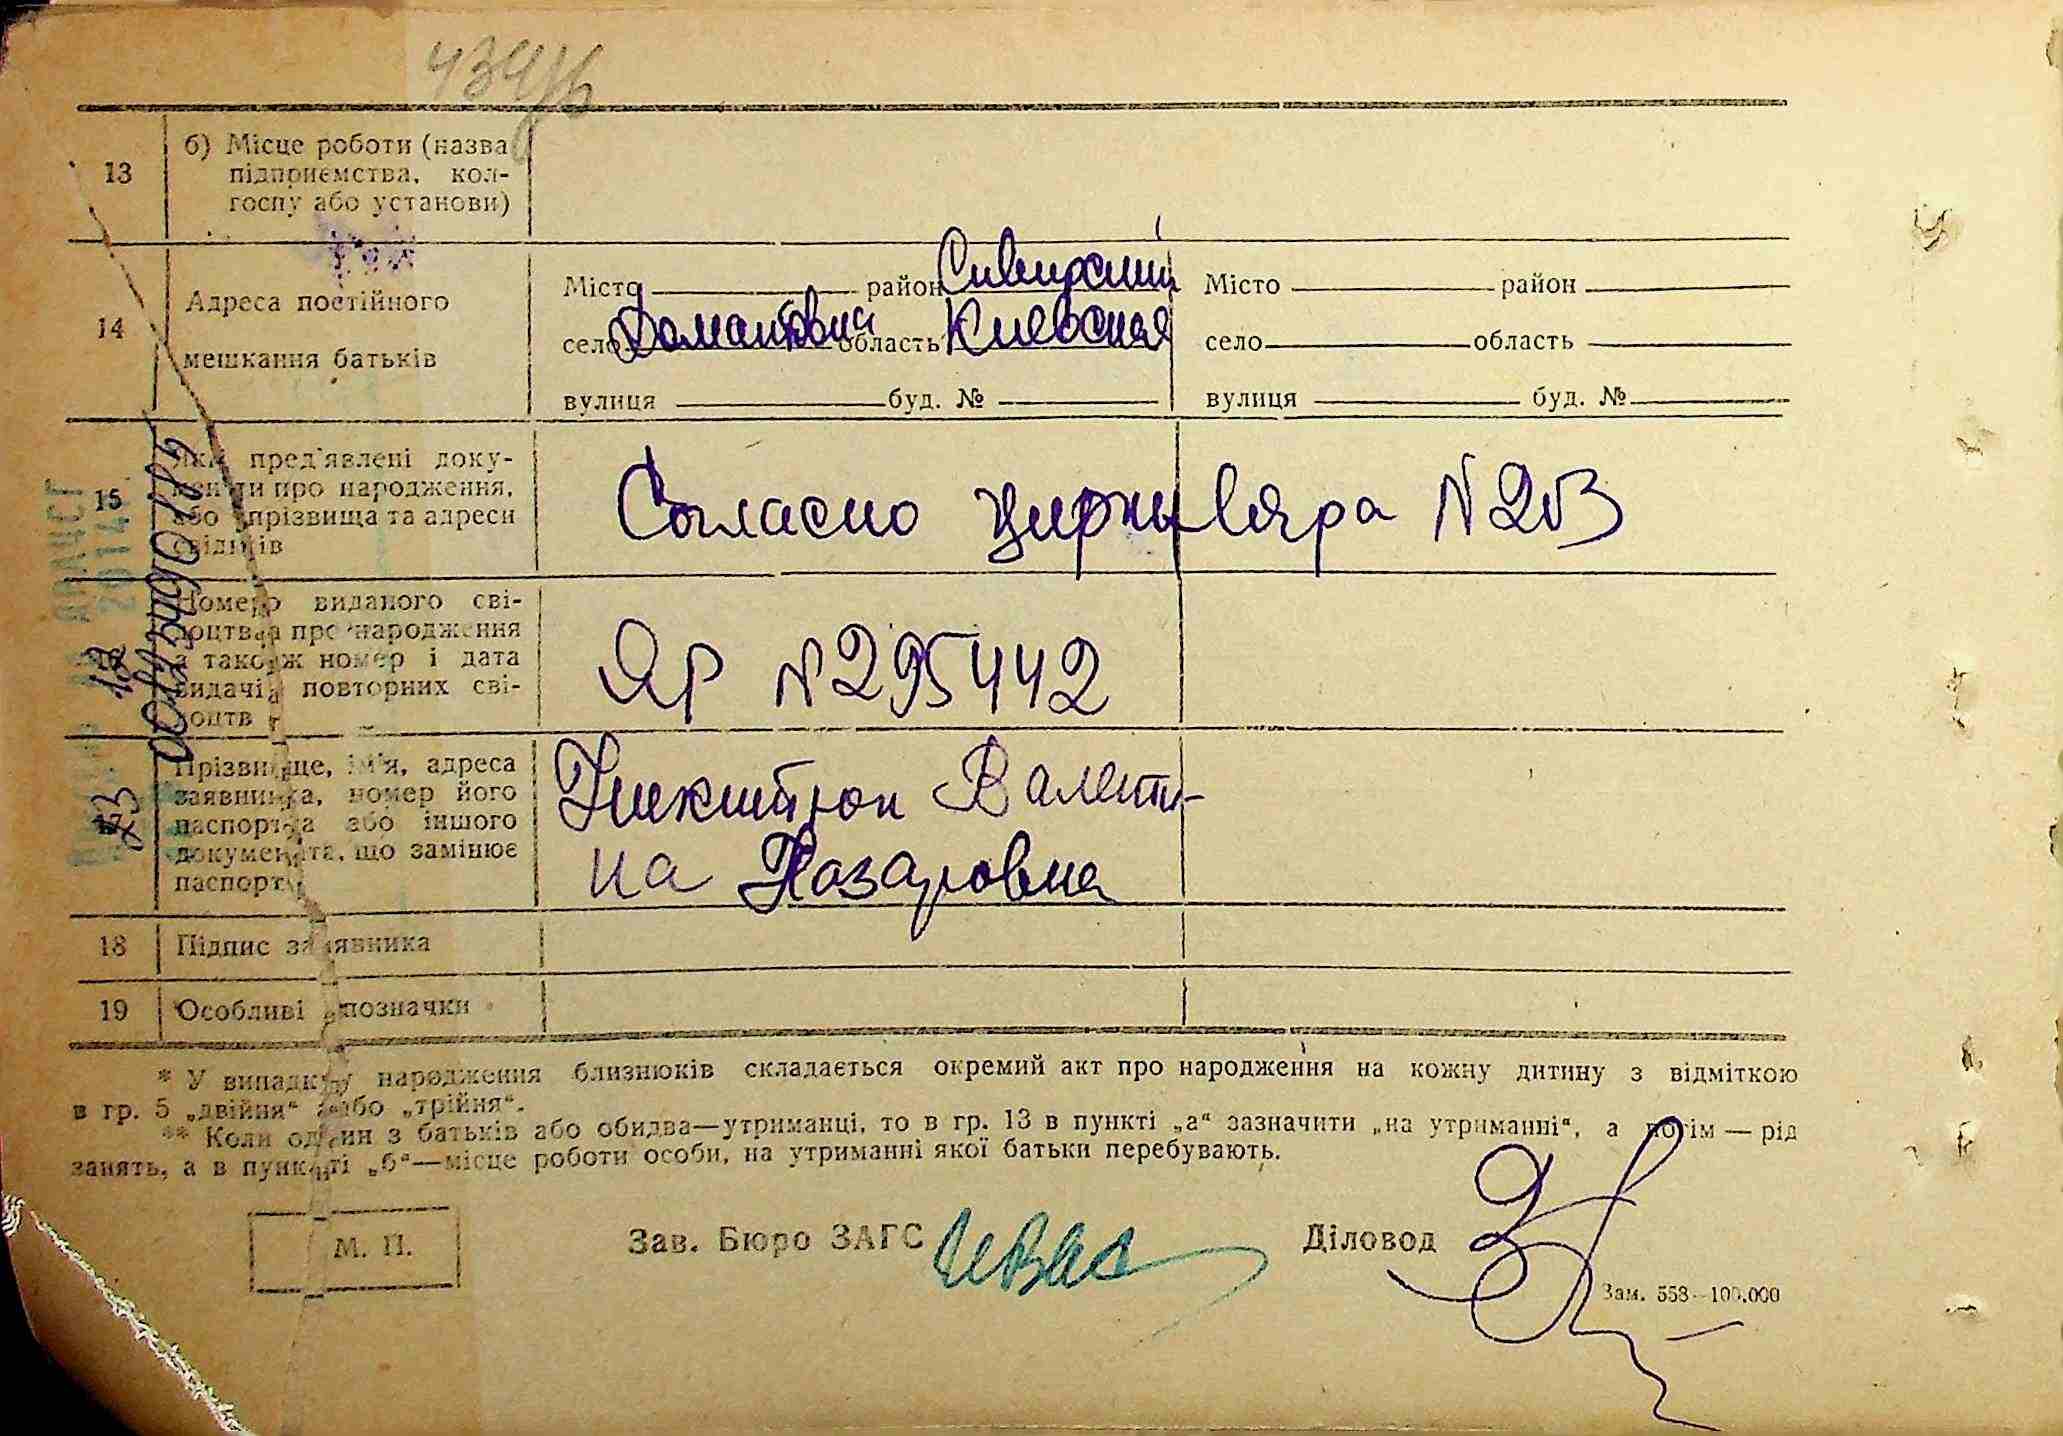 13
б) Місце роботи (назва
підприємства, кол-
госпу або установи)
14
Адреса постійного
мешкання батьків
Місто район Сивирский
село Домантовка область Киевская
вулиця буд. №
Місто район
село область
вулиця буд. №
15
Які пред'явлені доку-
менти про народження,
або прізвища та адреси
свідків
Согласно циркуляра N 203
Номер виданого сві-
доцтва про народження
а також номер і дата
видачі повторних сві-
доцтв
ЯР N 295442
Прізвище, ім'я, адреса
заявника, номер його
паспорта або іншого
документа, що замінює
паспорт
Валенти-
на Назаровна
18
Підпис заявника
19
Особливі позначки
* У випадку народження близнюків складається окремий акт про народження на кожну дитину з відміткою
в гр. 5 „двійня“ або „трійня“.
** Коли один з батьків або обидва—утриманці, то в гр. 13 в пункті „а“ зазначити „на утриманні“, а потім — рід
занять, а в пункті „б“—місце роботи особи, на утриманні якої батьки перебувають.
М. П.
Зав. Бюро ЗАГС
Діловод
Зам. 558—100.000